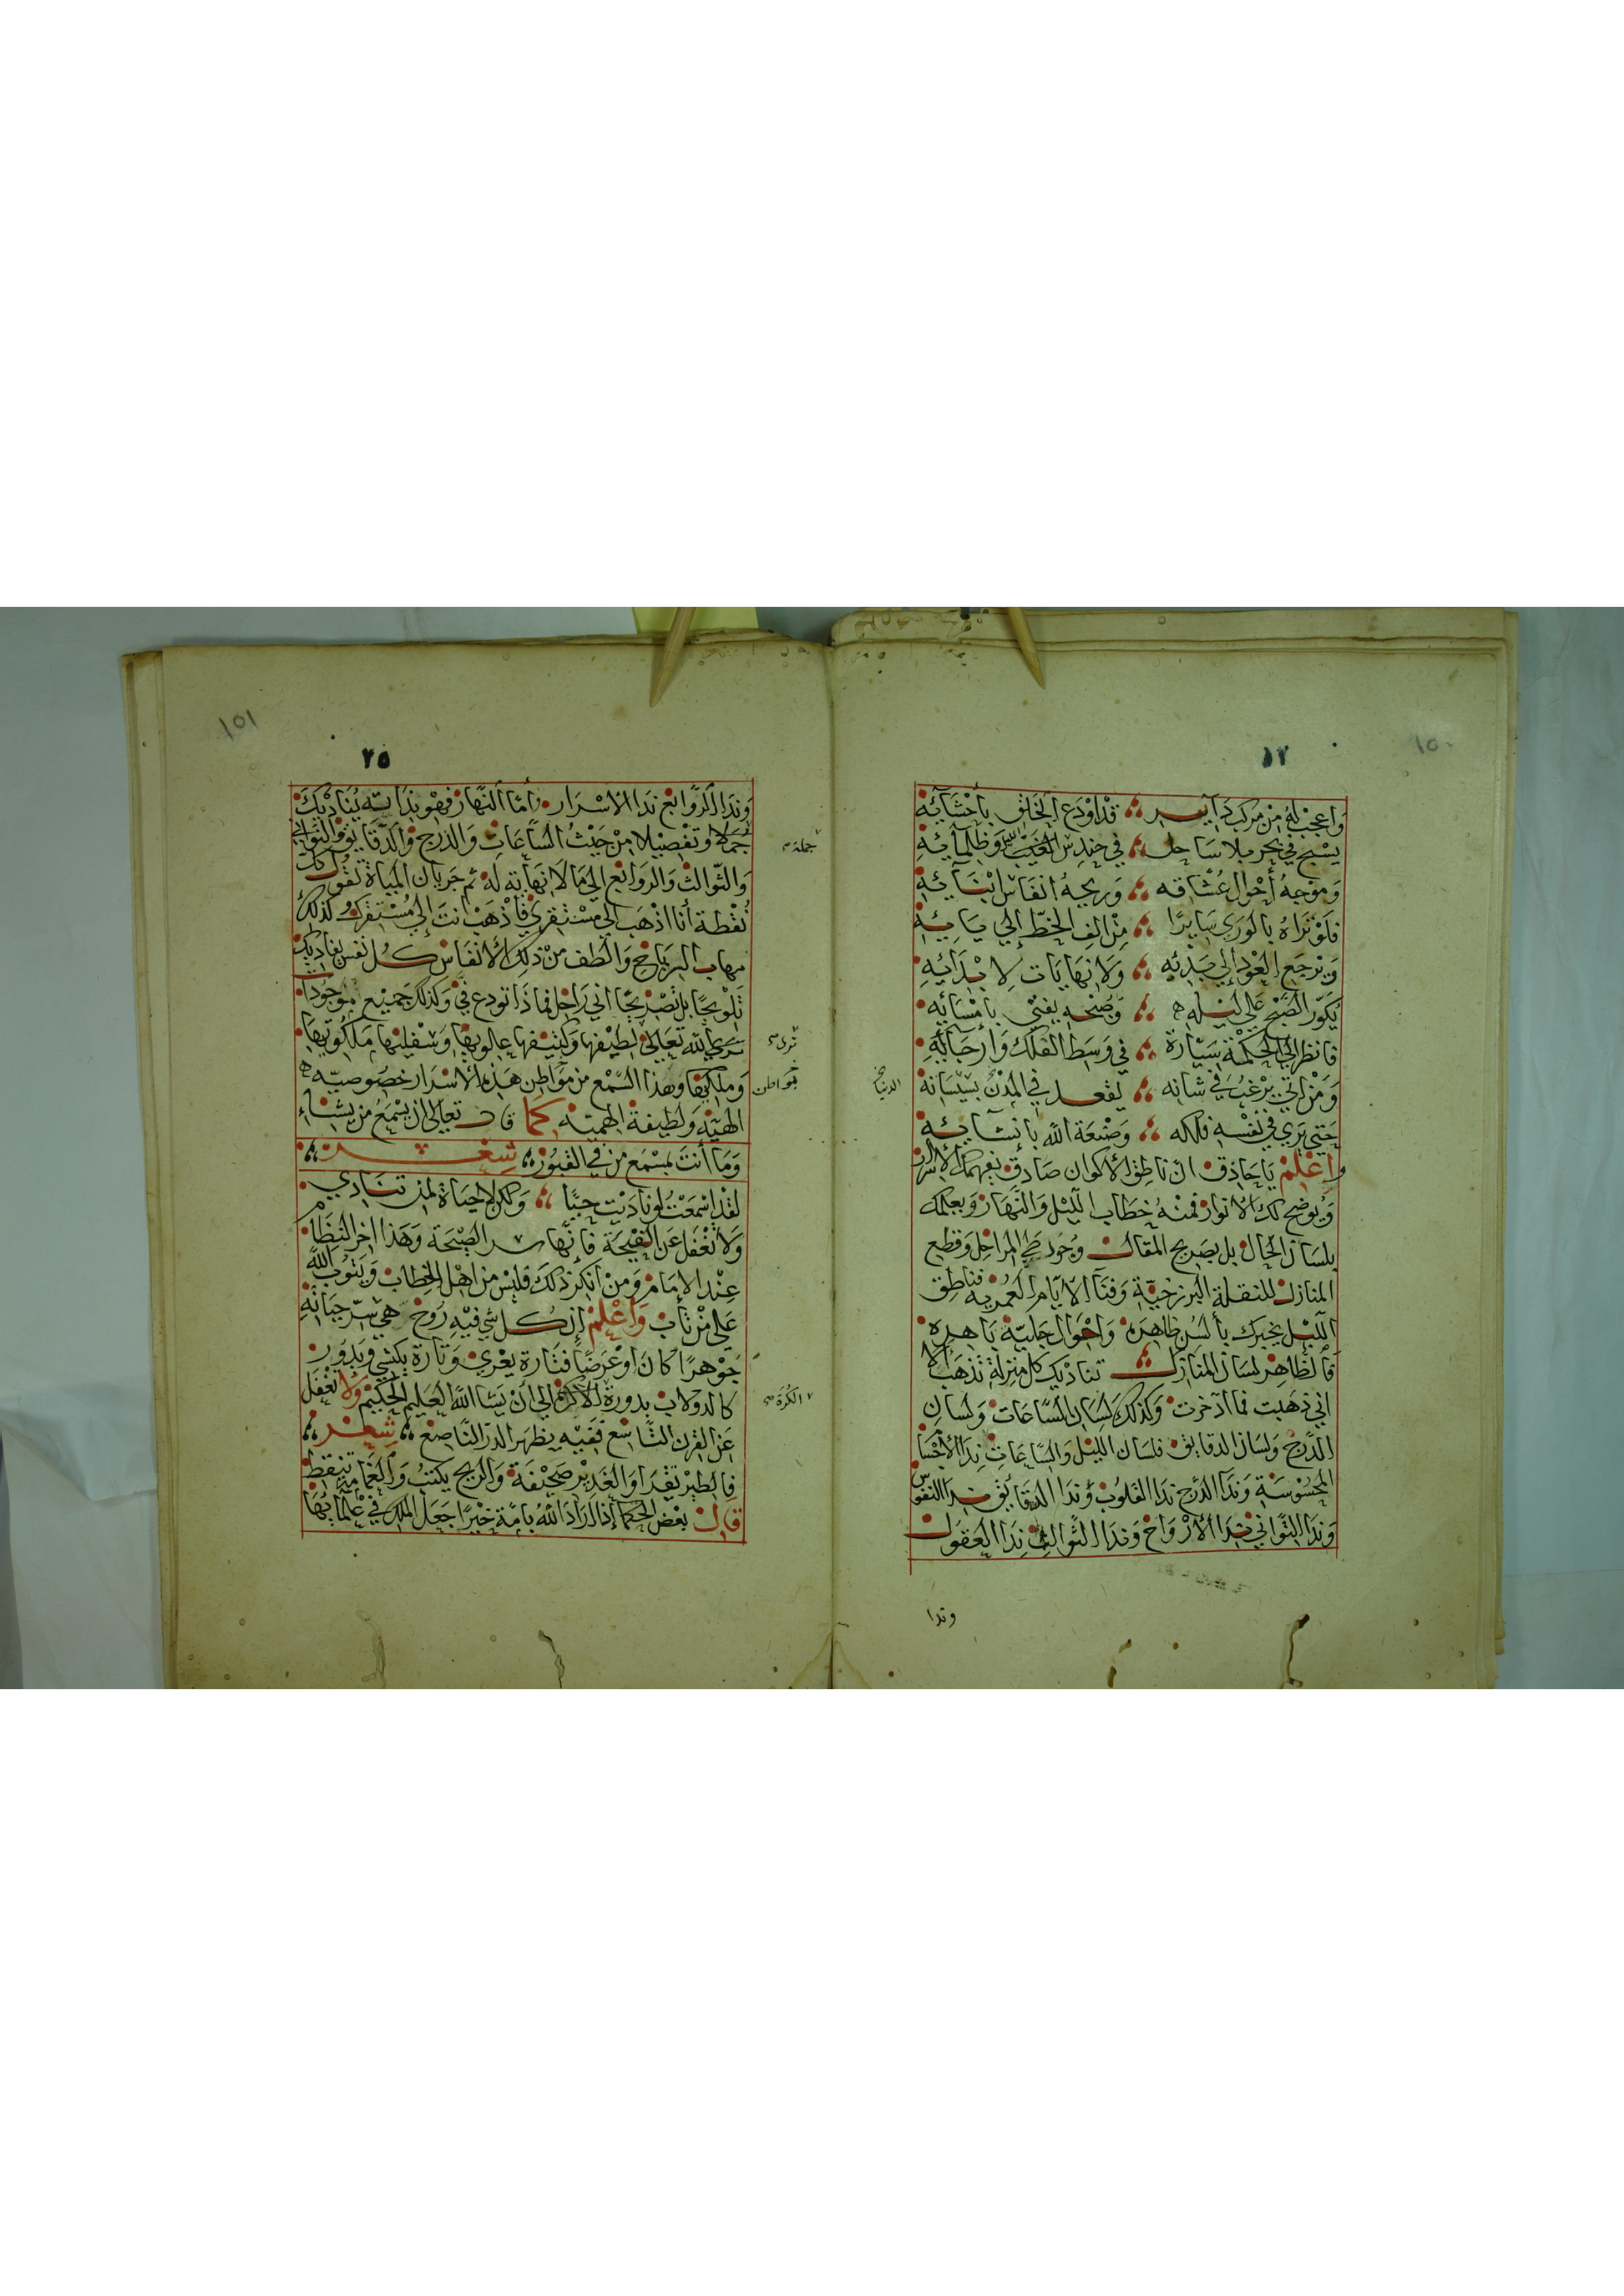 ١٥٠
١٢
واعجب له من مركب دآيسر ؞ قد اودع الخلق بأحشآئه
يسبح في بحر بلا ساحل ؞ في حندس الغيب وظلمآئه
وموجه أحوال عشاقه ؞ وريحه انفاس ابنآئه
فلو تراه بالورى سايرا ؞ من الف الخط إلى يائه
ويرجع العود إلى بدئه ؞ ولا نهايات لابدائه
يكور الصبح على ليله ؞ وصبحه يفنى بامسائه
فانظر إلى الحكمة سيارة ؞ في وسط الفلك وأرجائه
ومن اتى يرغب في شانه ؞ يقعد في
الدنيا
حتى يرى في نفسه فلكه ؞ وصنعة الله بانشائه
واعلم يا حاذق ان ناطق الاكوان صادق يفهمك الاسرار
ويوضح لك الانوار فمنه خطاب الليل والنهار ويعلمك
بلسان الحال بل بصريح المقال وجود طي المراحل وقطع
المنازل للنقلة البرزخية وفنآ الايام العمرية فناطق
الليل يخبرك بألسن ظاهره واحوال جلية باهره
فالظاهر لسان المنازل تناديك كل منزلة تذهب الا
اني ذهبت فما ادخرت وكذلك لسان الساعات ولسان
الدرج ولسان الدقايق فلسان الليل والساعات ندا الأجسا
المحسوسة وندآ الدرج ندا القلوب وندا الدقايق ندا النفوس
وندا الثواني ندا الأرواح وندا الثوالث ندا العقول
وندا
١٥١
٢٥
وندا الروابع ندا الاسرار واما النهار فهو بذاته يناديك
جملا وتفصيلا من حيث الساعات والدرج والدقايق والثواني
جملة
والثوالث والروابع الى ما لا نهاية له ثم جريان المياة تقول كل
نقطة أنا اذهب الى مستقري فأذهب انت إلى مستقرك وكذلك
مهاب الرياح والطف من ذلك الأنفاس كل نفس يناديك
تلويحا بل تصريحا اني راحل فماذا تودع في وكذلك جميع موجودات
الله تعالى لطيفها وكثيفها علويها وسفليها ملكوتيها
ترى
وملكيها وهذا السمع من مواطن هذه الأسرار خصوصيه
بمواطن
الهيه ولطيفة الهمية كما قال تعالى ان يسمع من يشاء
وما أنت بمسمع من في القبور ؞ شعر ؞
لقد اسمعت لو ناديت حيا ؞ ولكن لا حياة لمن تنادي
ولا تغفل عن النفيحة فانها سر الصيحة وهذا اخر النظام
عند الامام ومن أنكر ذلك فليس من اهل الخطاب ويتوب الله
على من تاب واعلم إن كل شي فيه روح هي سر حياته
جوهرا كان او عرضا فتارة يعرى وتارة يكتسي ويدور
كالدولاب بدورة الى أن يشا الله العليم الحكيم ولا تغفل
الكرة
عن القرن التاسع ففيه يظهر الدر الناصع ؞ شعر ؞
فالطير تقرا والغدير صحيفة والريح يكتب والغمامة تنقط
قال بعض الحكما إذا اراد الله بامة خيرا جعل الملك في علمائها